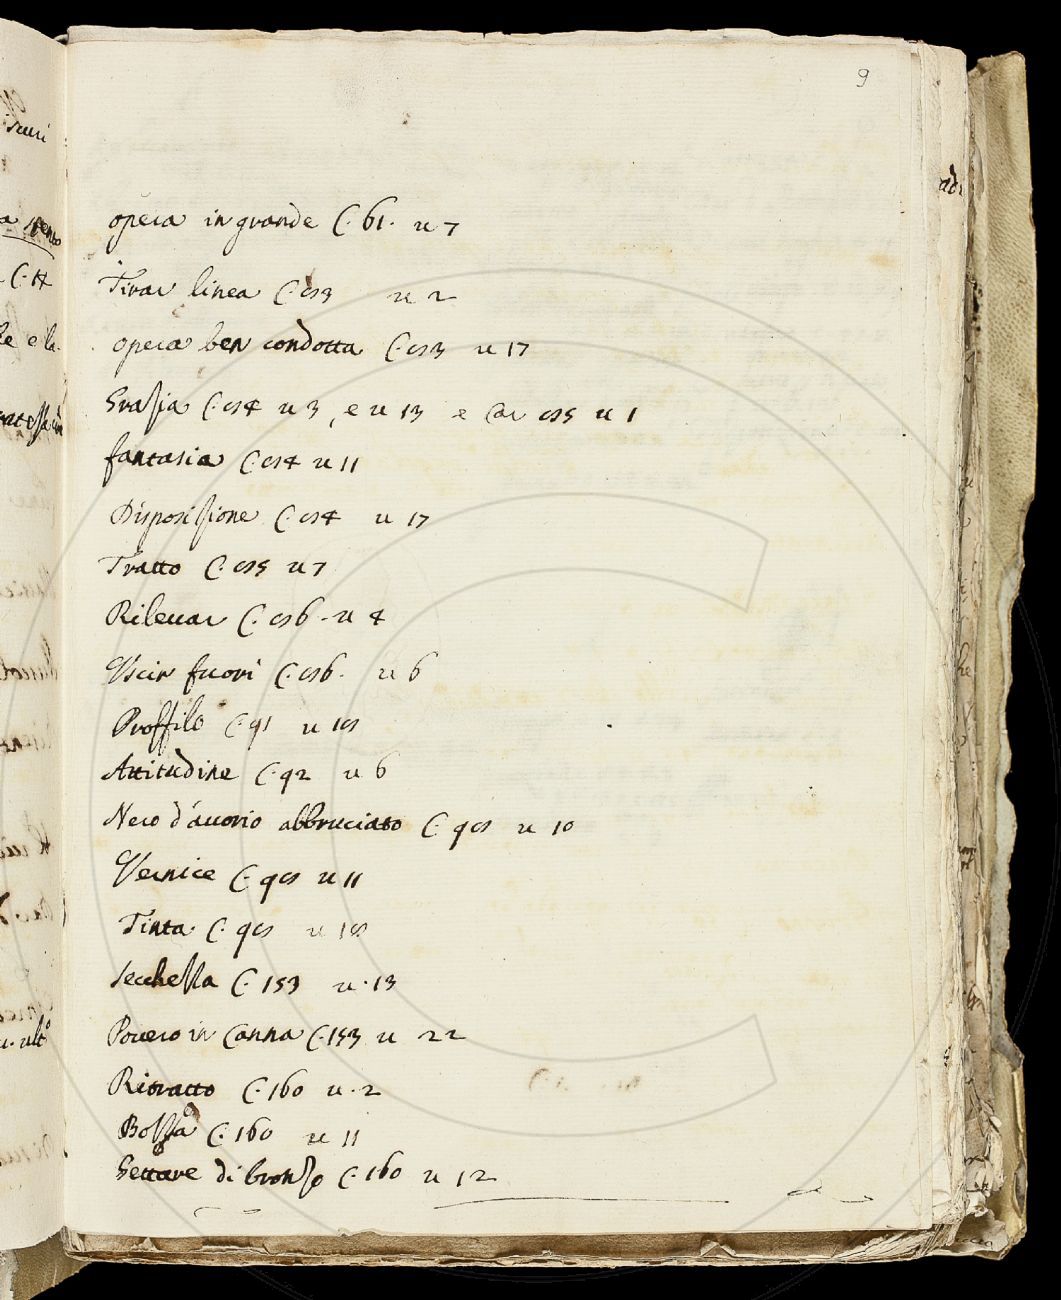 9
opera in grande C. 61. u 7
Tirar linea C. 83 u 2
opera ben condotta C. 83 u 17
Grazia C. 84 u 3, e u 13 e Car 85 u 1
fantasia C. 84 u 11
Disposizione C. 84 u 17
Tratto C. 85 u 7
Rileuar C. 86. u 4
Vscir fuori C. 86. u 6
Proffilo C. 91 u 18
Attitudine C. 92 u 6
Nero d'auorio abbruciato C. 98 u 10
Vernice C. 98 u 11
Tinta C. 98 u 18
Secchezza C. 153 u. 13
Pouero in Canna C. 153 u 22
Ritratto C. 160 u. 2
Bozza C. 160 u 11
Gettare di bronzo C. 160 u 12